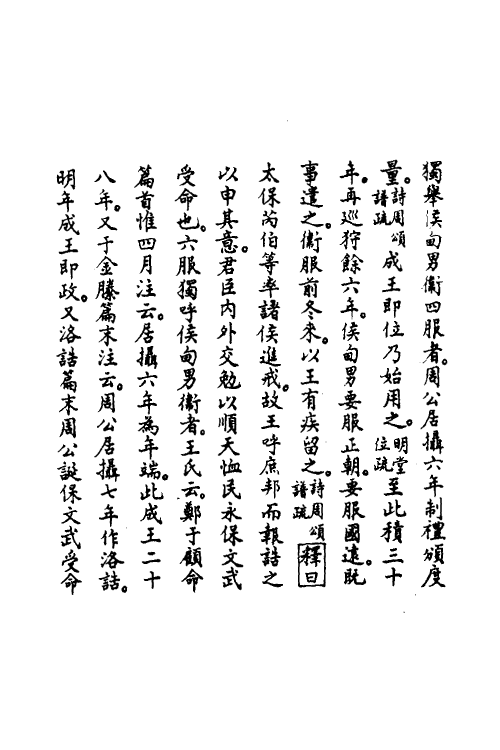 獨舉侯甸男衞四服者。周公居攝六年制禮頒度
量。詩周頌譜疏成王即位乃始用之。明堂位疏至此積三十
年。再巡狩餘六年。侯甸男要服正朝。要服國遠。旣
事遣之。衞服前冬來。以王有疾留之。詩周頌譜疏釋曰
太保芮伯等率諸侯進戒。故王呼庶邦而報誥之
以申其意。君臣内外交勉以順天恤民永保文武
受命也。六服獨呼侯甸男衞者。王氏云。鄭于顧命
篇首惟四月注云。居攝六年為年端。此成王二十
八年。又于金縢篇末注云。周公居攝七年作洛誥。
明年成王即政。又洛誥篇末周公誕保文武受命